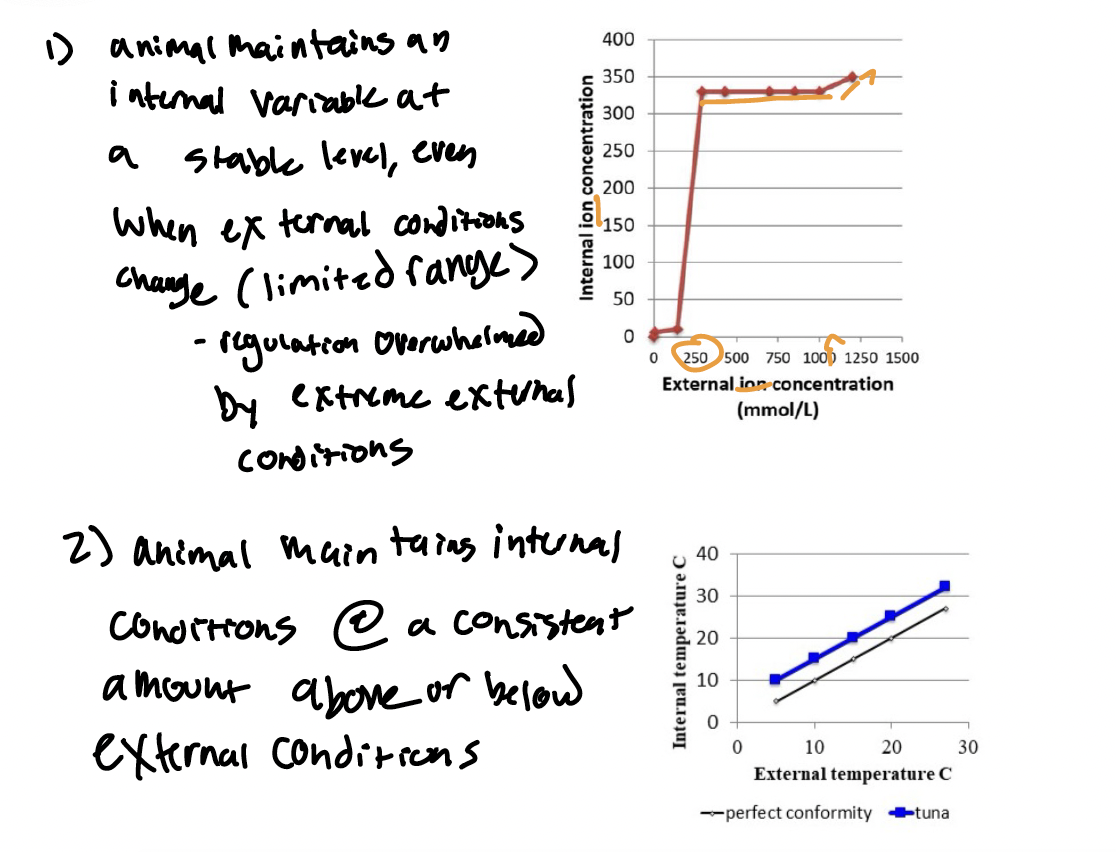 1) animal maintains an
internal variable at
a stable level, even
when external conditions
change (limited range)
- regulation overwhelmed
by extreme external
conditions
400
350
300
250
200
150
100
50
0
Internal ion concentration
0 250 500 750 1000 1250 1500
External ion concentration
(mmol/L)
2) animal maintains internal
conditions @ a consistent
amount above or below
external conditions
40
30
20
10
0
Internal temperature C
0 10 20 30
External temperature C
perfect conformity tuna